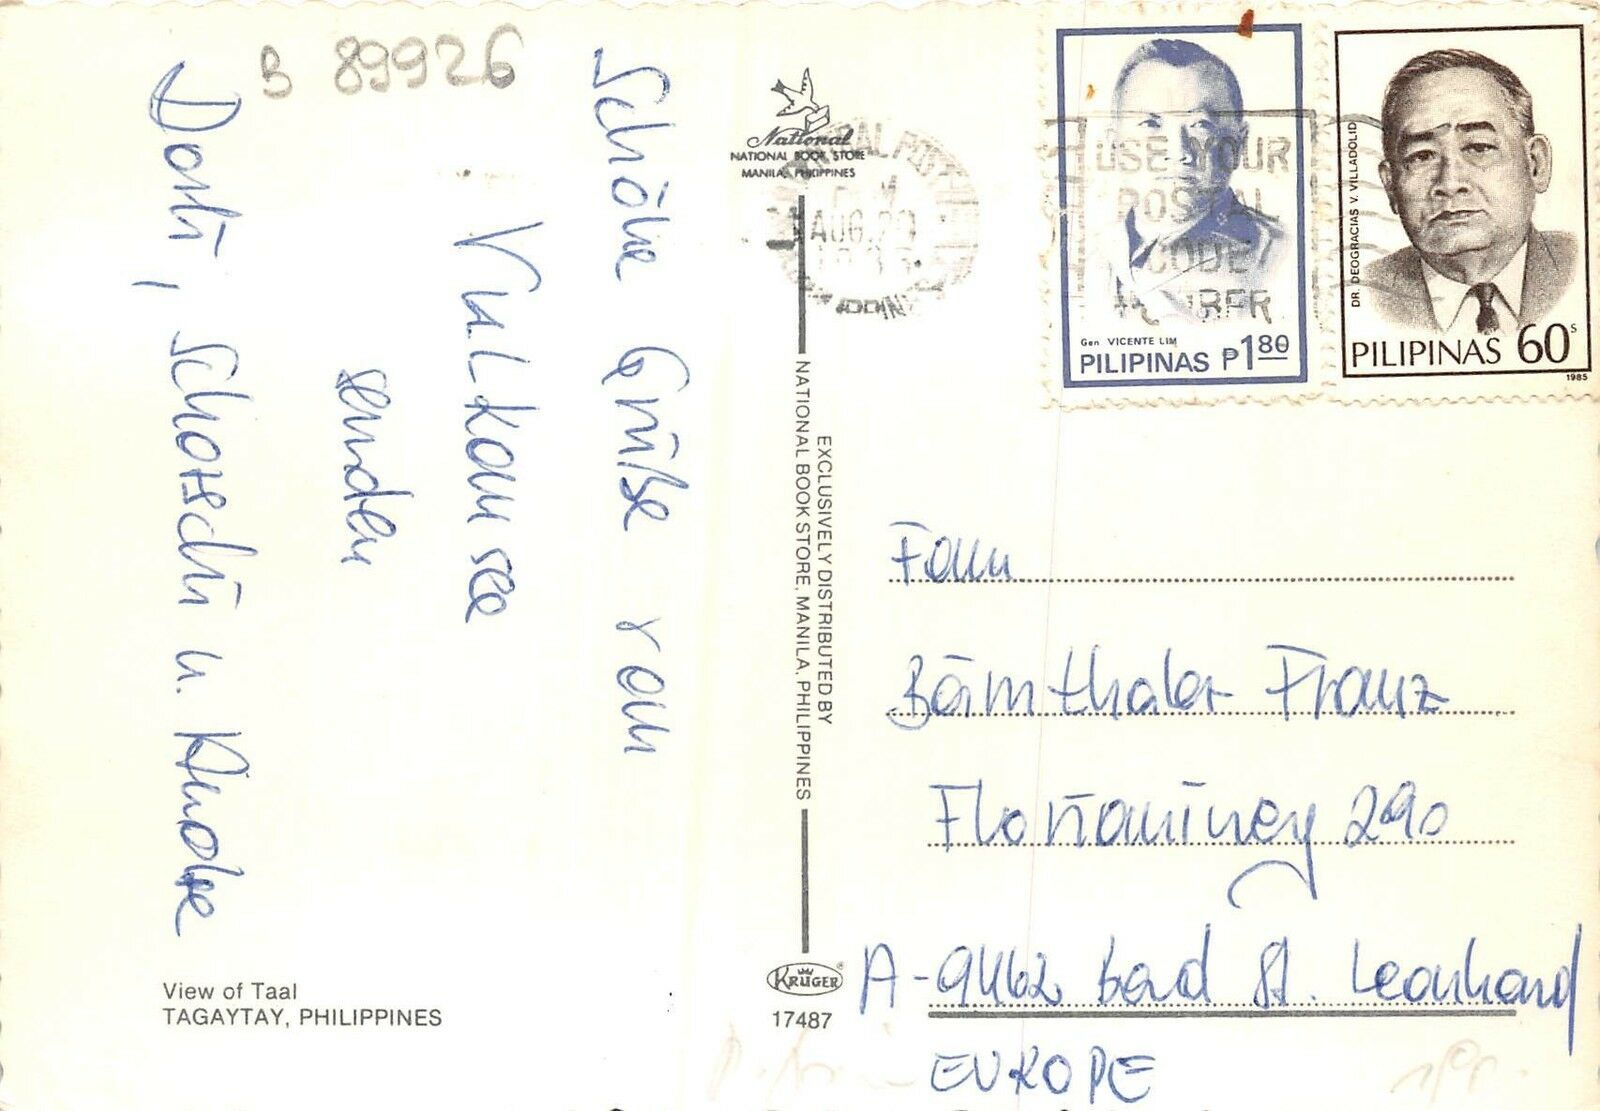 B 89926
Schöne Grüße von
Vulkansee
senden
Dorli, Schorschi u. Andrea
View of Taal
TAGAYTAY, PHILIPPINES
National
NATIONAL BOOK STORE
MANILA, PHILIPPINES
EXCLUSIVELY DISTRIBUTED BY
NATIONAL BOOK STORE, MANILA, PHILIPPINES
KRÜGER
17487
AUG 20
USE YOUR
POSTAL
CODE
Gen VICENTE LIM
PILIPINAS ₱1 80
DR. DEOGRACIAS V. VILLADOLID
PILIPINAS 60s
1985
Fam
Bärnthaler Franz
Florianiweg 290
A-9462 Bad St. Leonhard
EUROPE